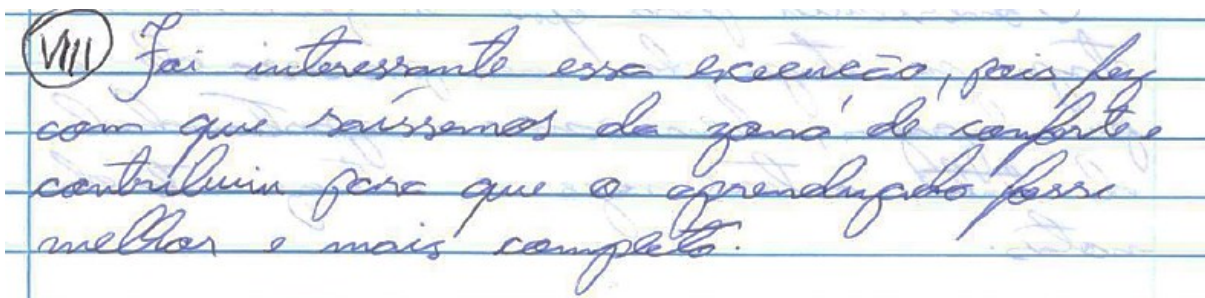 VIII Foi interessante essa execução, pois fez
com que saíssemos da zona de conforto e
contribuiu para que o aprendizado fosse
melhor e mais completo.